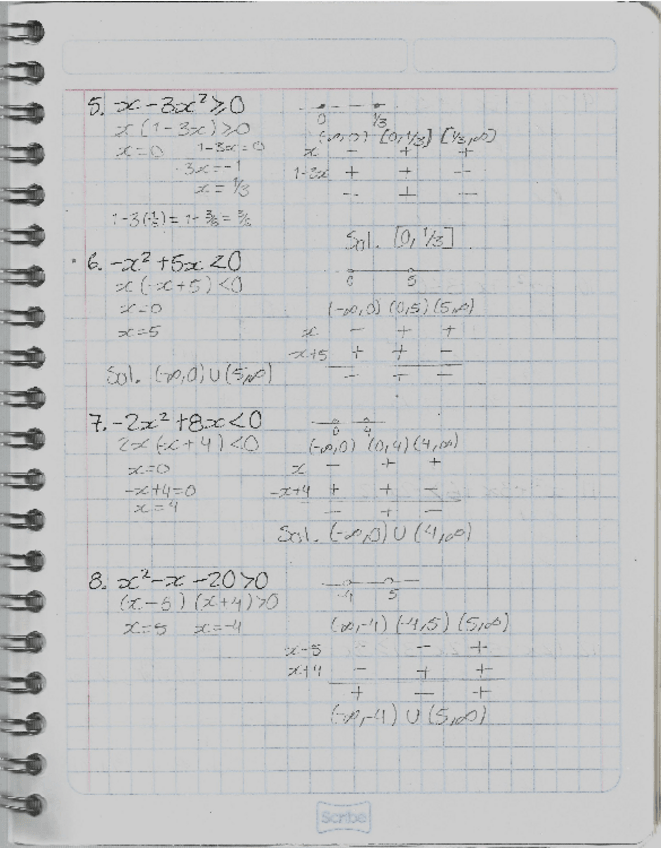 5. x - 3x² ≥ 0
x(1-3x) ≥ 0
x=0 1-3x=0
-3x=-1
x = 1/3
0 1/3
(-∞,0) [0,1/3] [1/3,∞)
x - + +
1-3x + + -
- + -
Sol. [0, 1/3]
6. -x² + 5x < 0
x(-x+5) < 0
x=0
x=5
0 5
(-∞,0) (0,5) (5,∞)
x - + +
-x+5 + + -
- + -
Sol. (-∞,0) ∪ (5,∞)
7. -2x² + 8x < 0
2x(-x+4) < 0
x=0
-x+4=0
x=4
0 4
(-∞,0) (0,4) (4,∞)
x - + +
-x+4 + + -
- + -
Sol. (-∞,0) ∪ (4,∞)
8. x² - x - 20 > 0
(x-5)(x+4) > 0
x=5 x=-4
-4 5
(-∞,-4) (-4,5) (5,∞)
x-5 - - +
x+4 - + +
+ - +
(-∞,-4) ∪ (5,∞)
Scribe